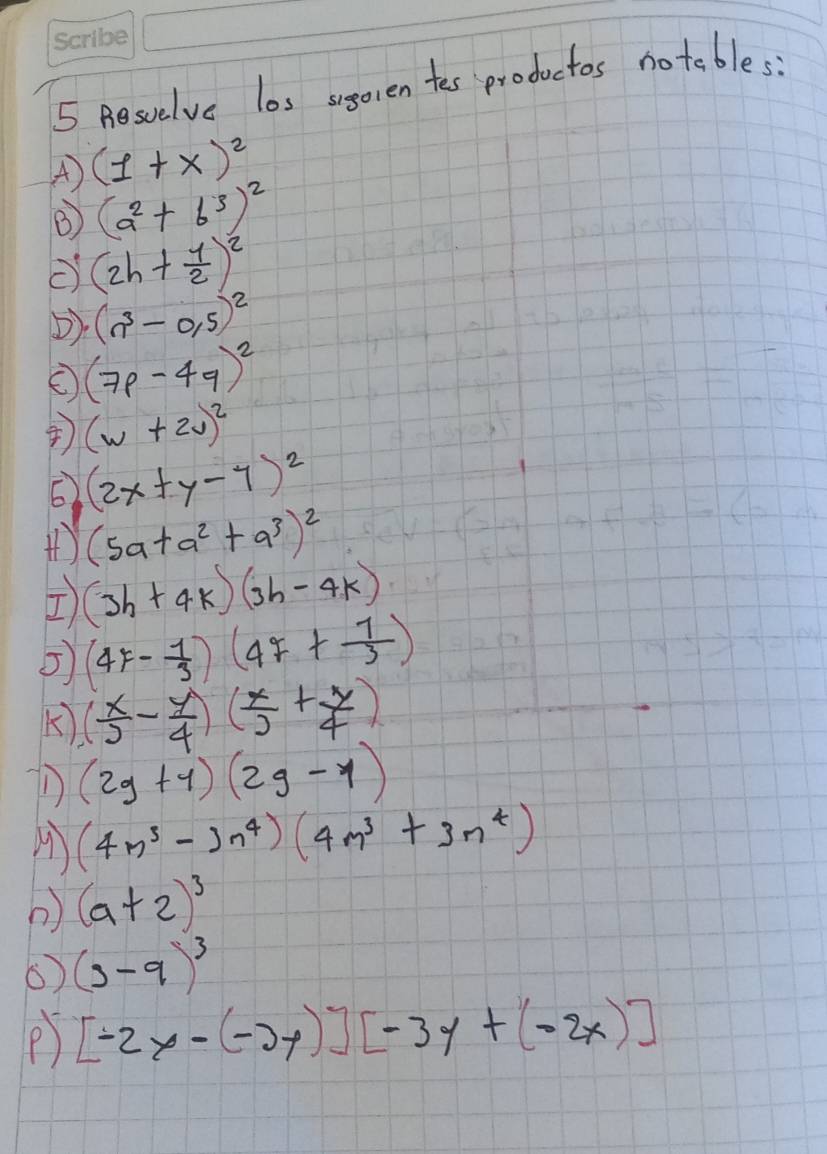 Scribe
5 Resuelve los sigoientes productos notables:
A) (1 + x)²
B) (a² + b³)²
C) (2h + 1/2)²
D) (n³ - 0,5)²
E) (7p - 4q)²
F) (w + 2v)²
G) (2x + y - 1)²
H) (5a + a² + a³)²
I) (3h + 4k) (3h - 4k)
J) (4F - 1/3) (4F + 1/3)
K) (x/3 - y/4) (x/3 + y/4)
l) (2g + 1) (2g - 1)
M) (4m³ - 3n⁴) (4m³ + 3n⁴)
n) (a + 2)³
O) (3 - q)³
P) [-2x - (-3y)] [-3y + (-2x)]